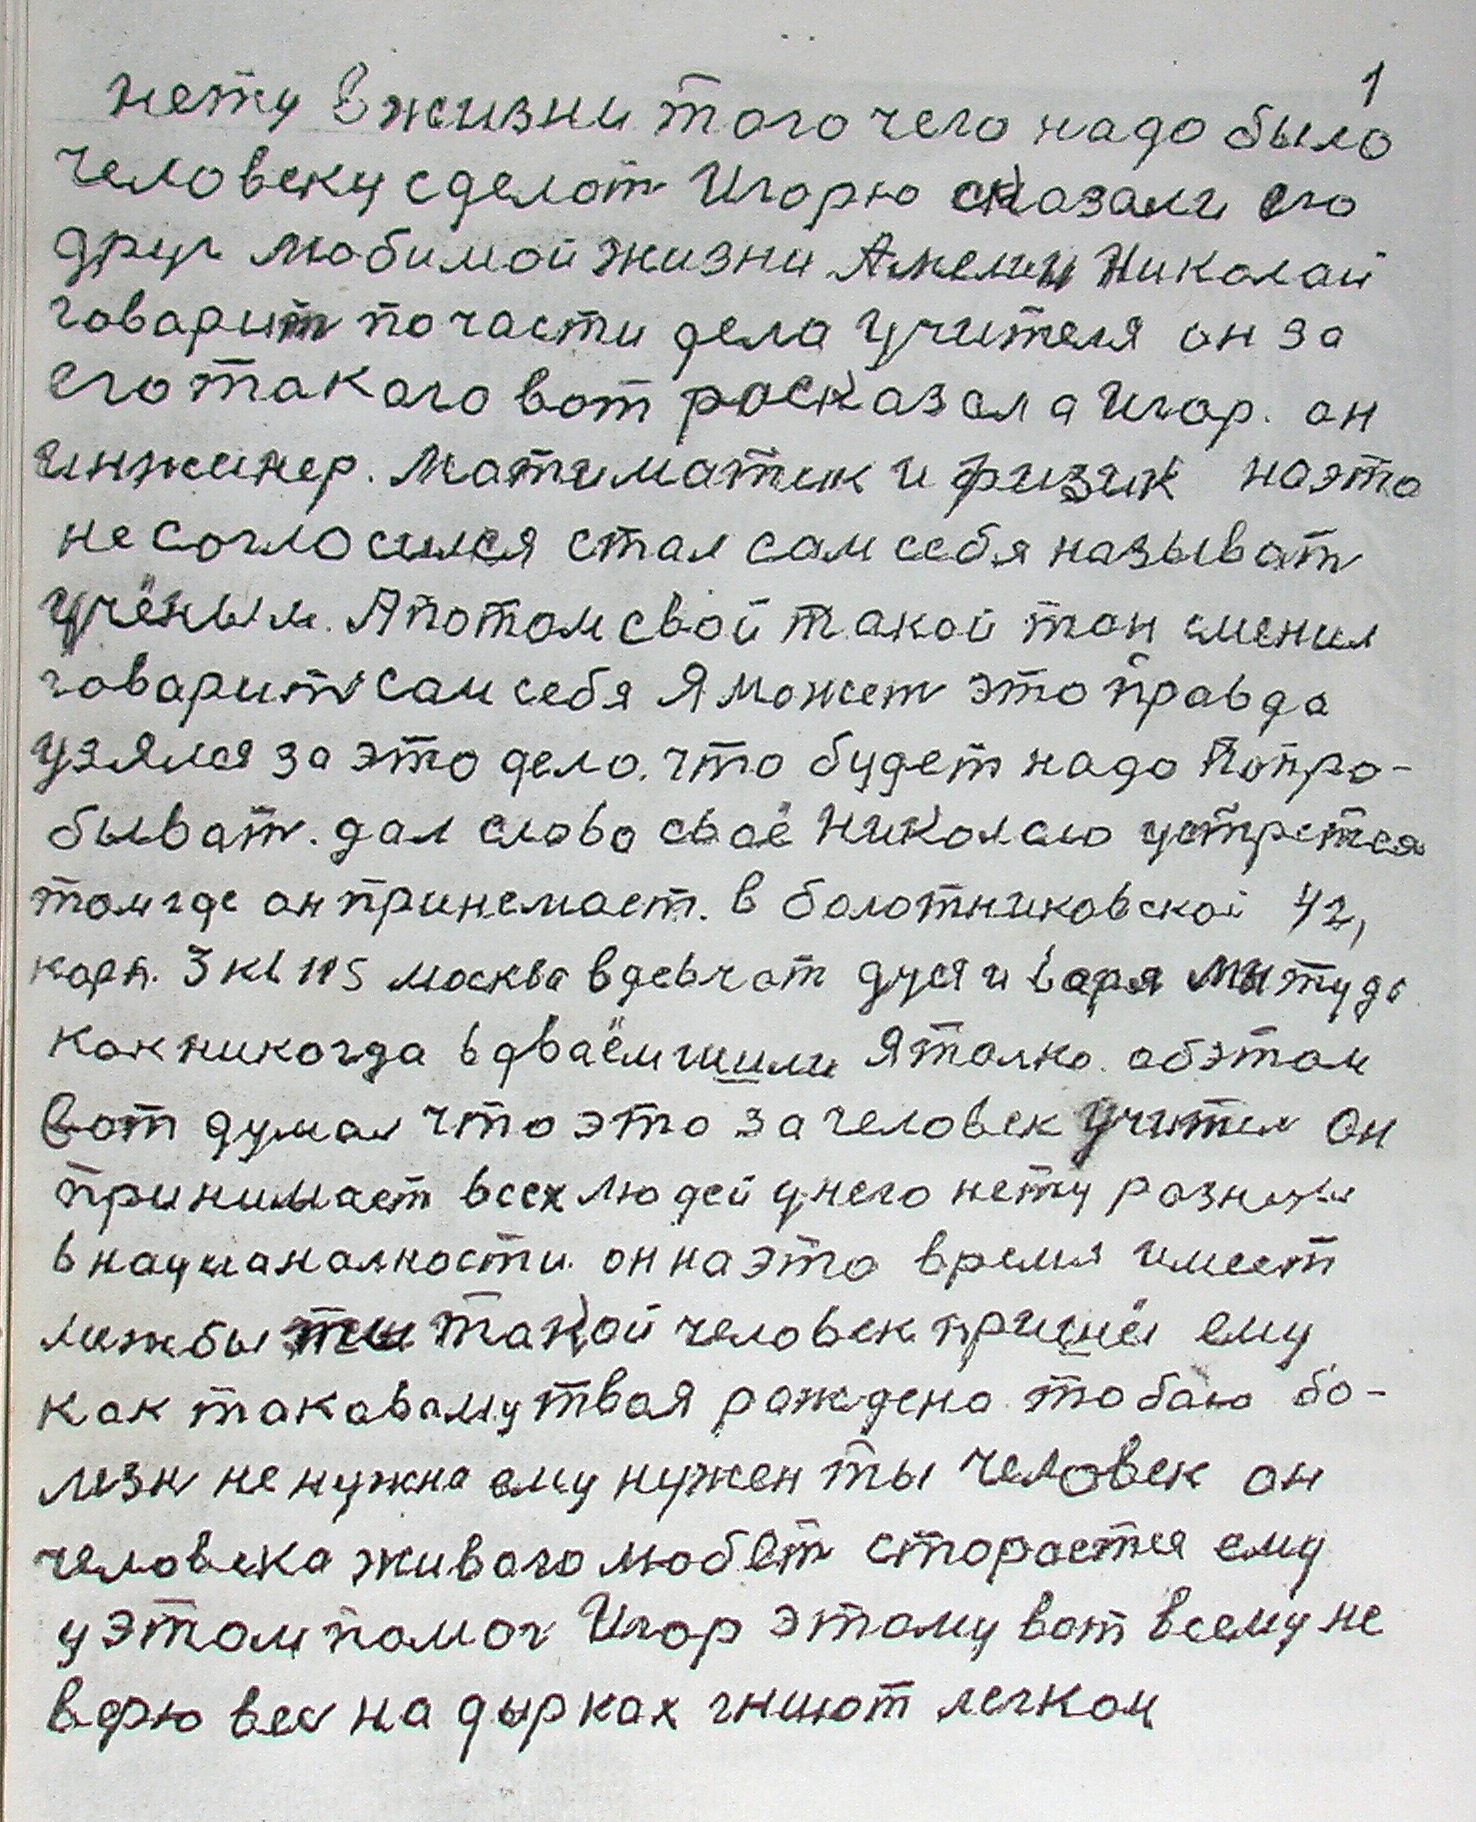 1
нету в жизни того чего надо было
человеку сделат Игорю сказали его
друг любимой жизни Амелин Николай
говарит по части дела Учителя он за
его такого вот росказал а Игор. он
инжинер. Матиматик и физик на это
не соглосился стал сам себя называт
учёным. А потом свой такой тон сменил
говарит сам себя Я может это правда
узялся за это дело. что будет надо попро-
быват. дал слово своё Николаю устретися
там где он принемает. в болотниковской 42,
корп. 3 кв 115 москва в девчат дуся и Варя мы туда
как никогда вдваём шили Я толко об этом
вот думал что это за человек Учител Он
принимает всех людей у него нету разницы
в национаности. он на это время имеет
лижбы ты такой человек пришёл ему
как таковаму твоя рождена тобаю бо-
лезн не нужна ему нужен ты человек он
человека живого любет сторается ему
у этом помоч Игор этому вот всему не
верю вес на дырках гниют легком